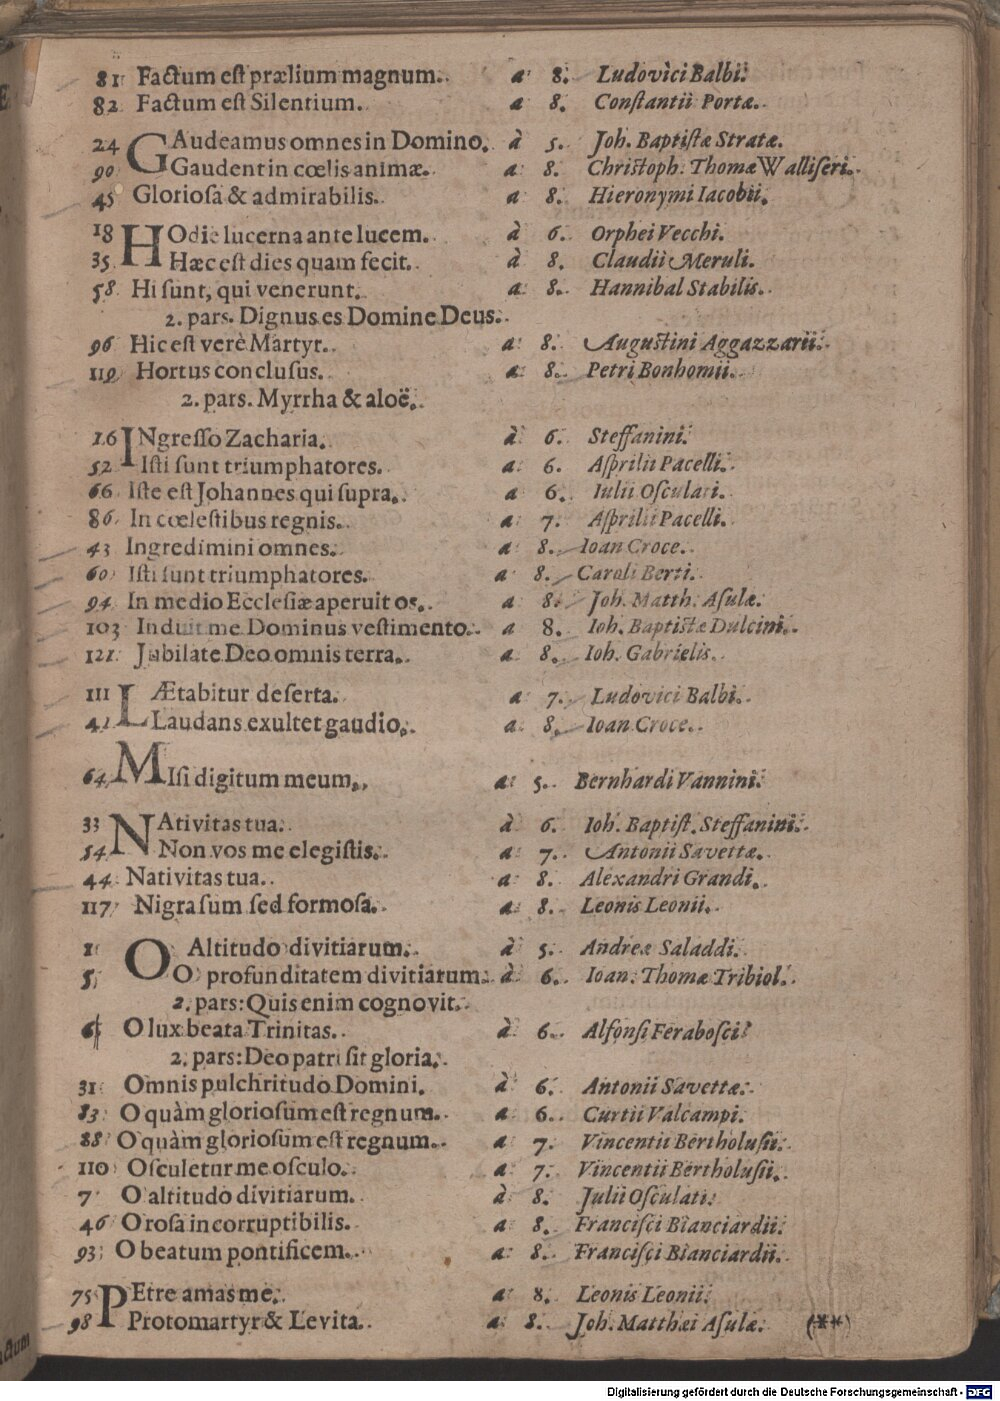 81 Factum est prælium magnum. a 8. Ludovici Balbi.
82 Factum est Silentium. a 8. Constantii Portæ.
24 GAudeamus omnes in Domino. à 5. Joh. Baptistæ Stratæ.
90 Gaudent in cœlis animæ. a 8. Christoph. Thomæ Walliseri.
45 Gloriosa & admirabilis. a 8. Hieronymi Iacobii.
18 HOdie lucerna ante lucem. à 6. Orphei Vecchi.
35 Hæc est dies quam fecit. à 8. Claudii Meruli.
58 Hi sunt, qui venerunt. a 8. Hannibal Stabilis.
2. pars. Dignus es Domine Deus.
96 Hic est verè Martyr. a 8. Augustini Aggazzarii.
119 Hortus conclusus. a 8. Petri Bonhomii.
2. pars. Myrrha & aloë.
16 INgresso Zacharia. à 6. Steffanini.
52 Isti sunt triumphatores. a 6. Asprilii Pacelli.
66 Iste est Johannes qui supra. a 6. Iulii Osculati.
86 In cœlestibus regnis. a 7. Asprilii Pacelli.
43 Ingredimini omnes. a 8. Ioan Croce.
60 Isti sunt triumphatores. a 8. Caroli Berti.
94 In medio Ecclesiæ aperuit os. a 8. Joh. Matth. Asulæ.
103 Induit me Dominus vestimento. a 8. Ioh. Baptistæ Dulcini.
121 Jubilate Deo omnis terra. a 8. Ioh. Gabrielis.
111 LÆtabitur deserta. a 7. Ludovici Balbi.
41 Laudans exultet gaudio. a 8. Ioan Croce.
64 MIsi digitum meum. a 5. Bernhardi Vannini.
33 NAtivitas tua. à 6. Ioh. Baptist. Steffanini.
54 Non vos me elegistis. a 7. Antonii Savettæ.
44 Nativitas tua. a 8. Alexandri Grandi.
117 Nigra sum sed formosa. a 8. Leonis Leonii.
1 O Altitudo divitiarum. à 5. Andreæ Saladdi.
5 O profunditatem divitiarum. à 6. Ioan. Thomæ Tribiol.
2. pars: Quis enim cognovit.
6 O lux beata Trinitas. à 6. Alfonsi Ferabosci.
2. pars: Deo patri sit gloria.
31 Omnis pulchritudo Domini. à 6. Antonii Savettæ.
83 O quàm gloriosum est regnum. a 6. Curtii Valcampi.
88 O quàm gloriosum est regnum. a 7. Vincentii Bertholusii.
110 Osculetur me osculo. a 7. Vincentii Bertholusii.
7 O altitudo divitiarum. à 8. Julii Osculati.
46 O rosa incorruptibilis. a 8. Francisci Bianciardii.
93 O beatum pontificem. a 8. Francisci Bianciardii.
75 PEtre amas me. a 8. Leonis Leonii.
98 Protomartyr & Levita. a 8. Joh. Matthæi Asulæ. (**)
Digitalisierung gefördert durch die Deutsche Forschungsgemeinschaft - DFG